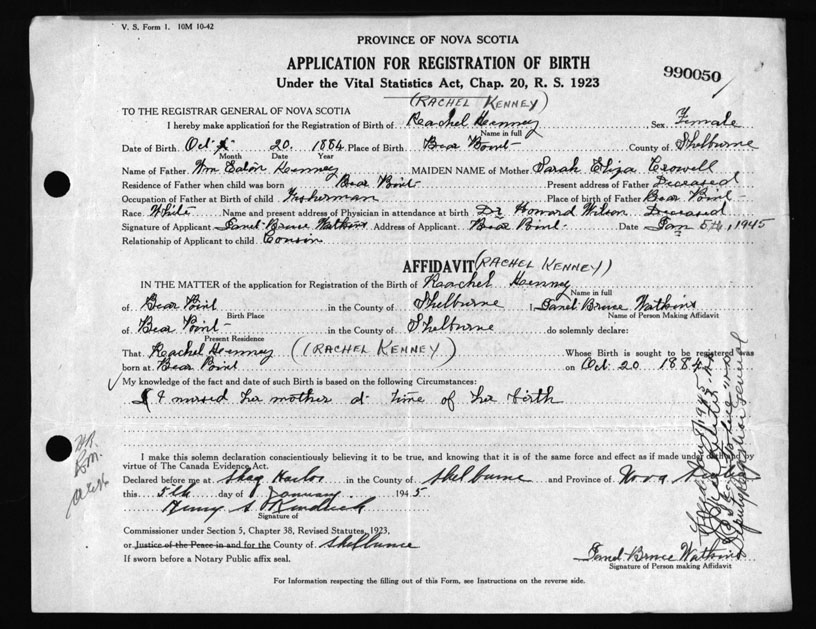 V. S. Form 1. 10M 10-42
PROVINCE OF NOVA SCOTIA
APPLICATION FOR REGISTRATION OF BIRTH
990050
Under the Vital Statistics Act, Chap. 20, R. S. 1923
(RACHEL KENNEY)
TO THE REGISTRAR GENERAL OF NOVA SCOTIA
I hereby make application for the Registration of Birth of Reachel Kenney Sex Female
Name in full
Date of Birth Oct 20 1884 Place of Birth Bear Point County of Shelburne
Month Date Year
Name of Father Wm Eaton Kenney MAIDEN NAME of Mother Sarah Eliza Crowell
Residence of Father when child was born Bear Point Present address of Father Deceased
Occupation of Father at Birth of Child Fisherman Place of birth of Father Bear Point
Race White Name and present address of Physician in attendance at birth Dr Howard Wilson Deceased
Signature of Applicant Janet Bruce Watkins Address of Applicant Bear Point Date Jan 5th, 1945
Relationship of Applicant to child Cousin
AFFIDAVIT (RACHEL KENNEY)
IN THE MATTER of the application for Registration of the Birth of Reachel Kenney
Name in full
of Bear Point in the County of Shelburne I Janet Bruce Watkins
Birth Place Name of Person Making Affidavit
of Bear Point in the County of Shelburne do solemnly declare:
Present Residence
That Reachel Kenney (RACHEL KENNEY) Whose Birth is sought to be registered was
born at Bear Point on Oct 20 1884
My knowledge of the fact and date of such Birth is based on the following Circumstances:
I nursed her mother at time of her birth
I make this solemn declaration conscientiously believing it to be true, and knowing that it is of the same force and effect as if made under oath and by
virtue of The Canada Evidence Act.
Declared before me at Shag Harbor in the County of Shelburne and Province of Nova Scotia
this 5th day of January 1945
Henry S. Kendrick
Signature of
Commissioner under Section 5, Chapter 38, Revised Statutes, 1923,
or Justice of the Peace in and for the County of Shelburne
If sworn before a Notary Public affix seal.
Janet Bruce Watkins
Signature of Person making Affidavit
For Information respecting the filling out of this Form, see Instructions on the reverse side.
Deputy Registrar General